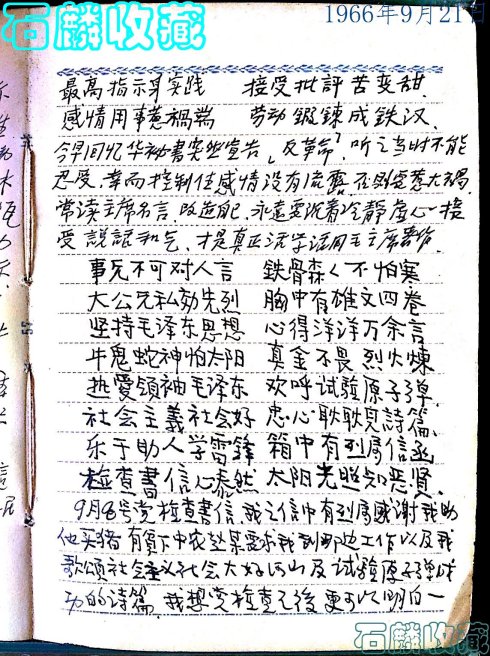 石麟收藏
1966年9月21日
最高指示身实践 接受批評苦变甜.
感情用事惹禍端 劳动鍛鍊成鉄汉.
今早回忆华秘書突然宣告反革命? 听之当时不能
忍受.幸而控制住感情没有流露.否則要惹大禍.
常读主席名言.改造自己.永遠要沉着冷静虚心接
受 説話和气.才是真正活学活用主席著作.
事无不可对人言 鉄骨森々不怕寒
大公无私効先烈 胸中有雄文四卷
坚持毛泽东思想 心得洋洋万余言
牛鬼蛇神怕太阳 真金不畏烈火煉
热愛領袖毛泽东 欢呼试验原子弹.
社会主義社会好 忠心耿耿見詩篇.
乐于助人学雷鋒 箱中有列属信函
检查書信心泰然 太阳光照知恶贤.
9月8号党检查書信.我之信中有列属感谢我助
他买猪.有貧下中农 要求我到那边工作以及我
歌頌社会主义社会大好河山及试验原子弹成
功的诗篇.我想党检查之後更可以明白一
石麟收藏